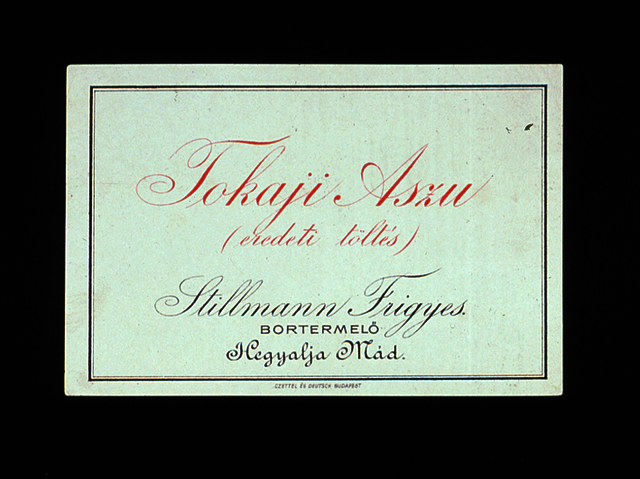 Tokaji Aszu
(eredeti töltés)
Stillmann Frigyes.
BORTERMELŐ
Hegyalja Mád.
CZETTEL ÉS DEUTSCH BUDAPEST